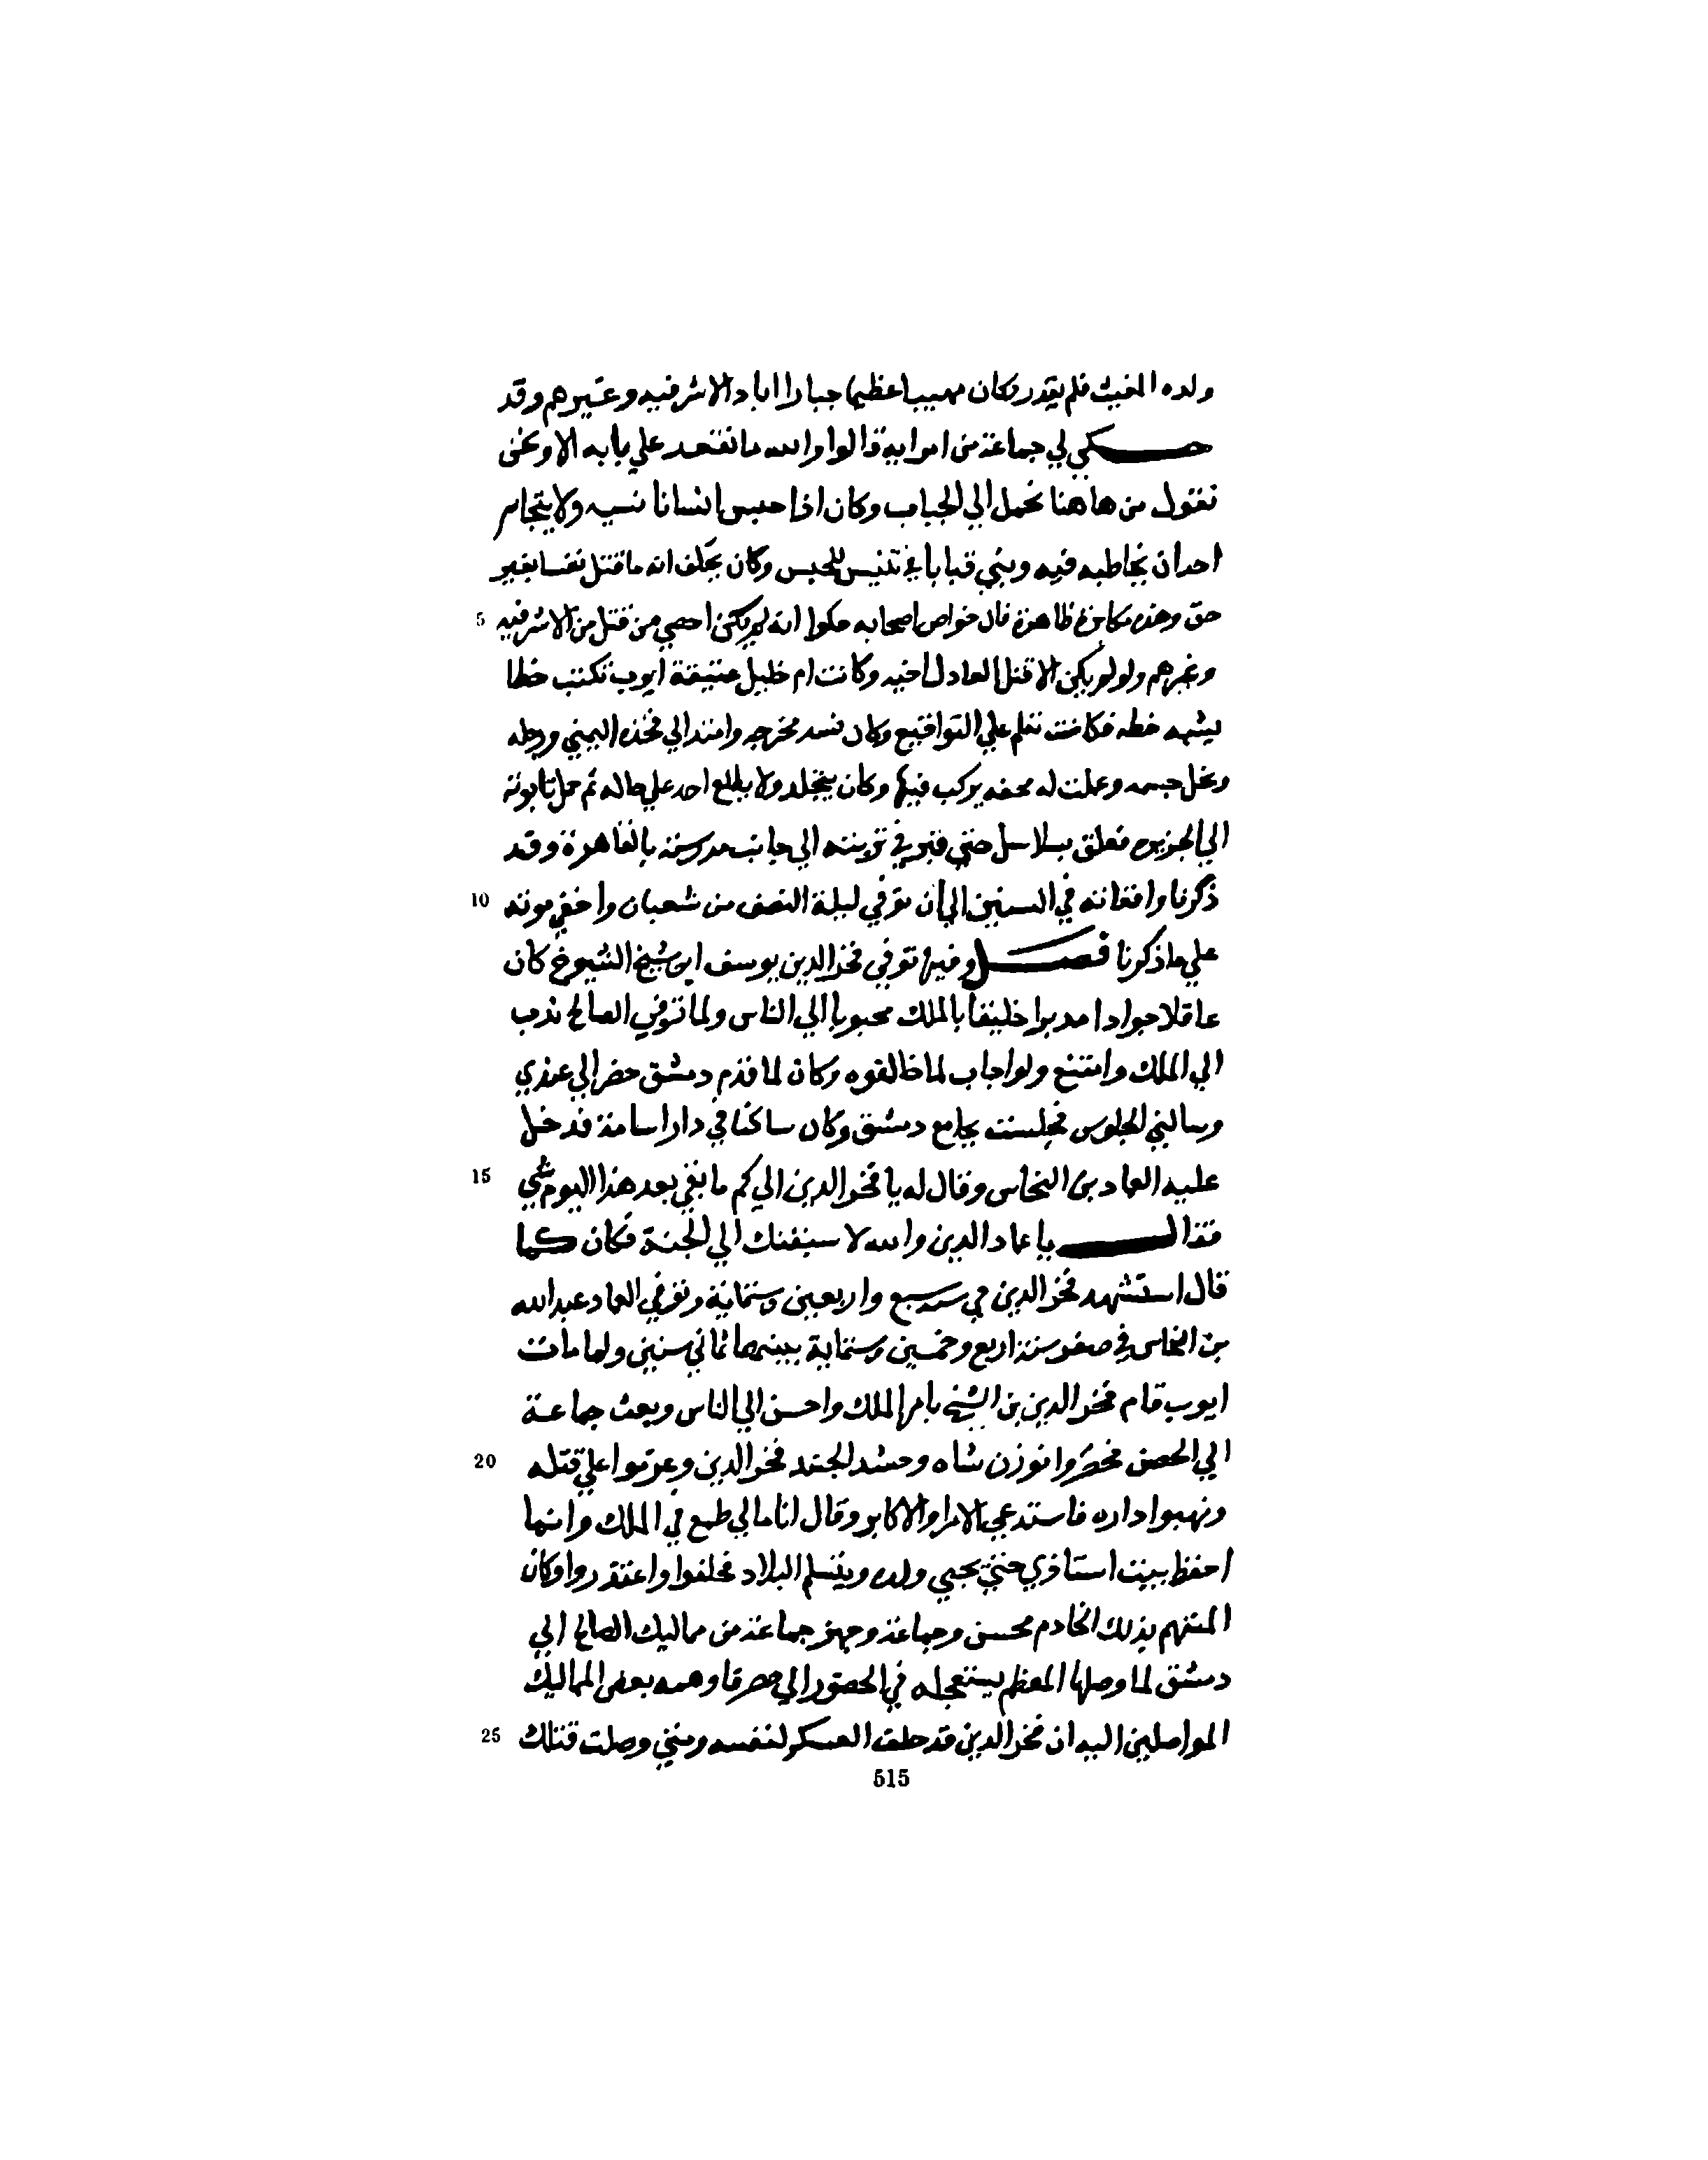 ولده المغيث فلم يقدر وكان مهيبا عظيما جبارا اباد الاشرفيه وغيرهم وقد
حكي لي جماعة من امرايه قالوا والله ما نقعد علي بابه الا ونحن
نقول من هاهنا نحمل الي الجباب وكان اذا حبس انسانا نسيه ولا يتجاسر
احدان يخاطبه فيه وبني قبابا في تنيس للحبس وكان يحلف انه ما قتل نفسا بغير
5 حق وهذه مكابرة ظاهرة فان خواص اصحابه حكوا انه لم يكن احصي من قتل من الاشرفيه
وغيرهم ولو لم يكن الا قتل العادل اخيه وكانت ام خليل عتيقة ايوب تكتب خطا
يشبه خطه فكانت تعلم علي التواقيع وكان فسد مخرجه وامتد الي فخذه اليمني ورجله
ونحل جسمه وعملت له محفه يركب فيها وكان يتجلد ولا يطلع احد علي حاله ثم حمل تابوته
الي الجزيره فعلق بسلاسل حتي قبر في تربته الي جانب مدرسته بالقاهرة وقد
10 ذكرنا واقعاته في السنين الي ان توفي ليلة النصف من شعبان واخفي موته
علي ما ذكرنا فصل وفيها توفي فخر الدين يوسف ابن شيخ الشيوخ كان
عاقلا جوادا مدبرا خليقا بالملك محبوبا الي الناس ولما توفي الصالح ندب
الي الملك وامتنع ولو اجاب لما خالفوه وكان لما قدم دمشق حضر الي عندي
وسالني الجلوس فجلست بجامع دمشق وكان ساكنا في دار اسامة فدخل
15 عليه العماد بن النحاس وقال له يا فخر الدين الي كم ما بقي بعد هذا اليوم شي
فقال يا عماد الدين والله لا سبقنك الي الجنة فكان كما
قال استشهد فخر الدين في سنه سبع واربعين وستماية وتوفي العماد عبد الله
بن النحاس في صفر سنة اربع وخمسين وستماية بينهما ثماني سنين ولما مات
ايوب قام فخر الدين بن الشيخ بامر الملك واحسن الي الناس وبعث جماعة
20 الي الحصن فحضروا توران شاه وحشد الجند فخر الدين وعزموا علي قتله
ونهبوا داره فاستدعي الامرا والاكابر وقال انا مالي طمع في الملك وانما
احفظ بيت استاذي حتي يجيي ولده ويتسلم البلاد فحلفوا واعتذروا وكان
المتهم بذلك الخادم محسن وجماعة وجهز جماعة من مماليك الصالح الي
دمشق لما وصلها المعظم يستعجله في الحضور الي مصر فاوهمه بعض المماليك
25 المواصلين اليه ان فخر الدين قد حلف العسكر لنفسه ومتي وصلت قتلك
515